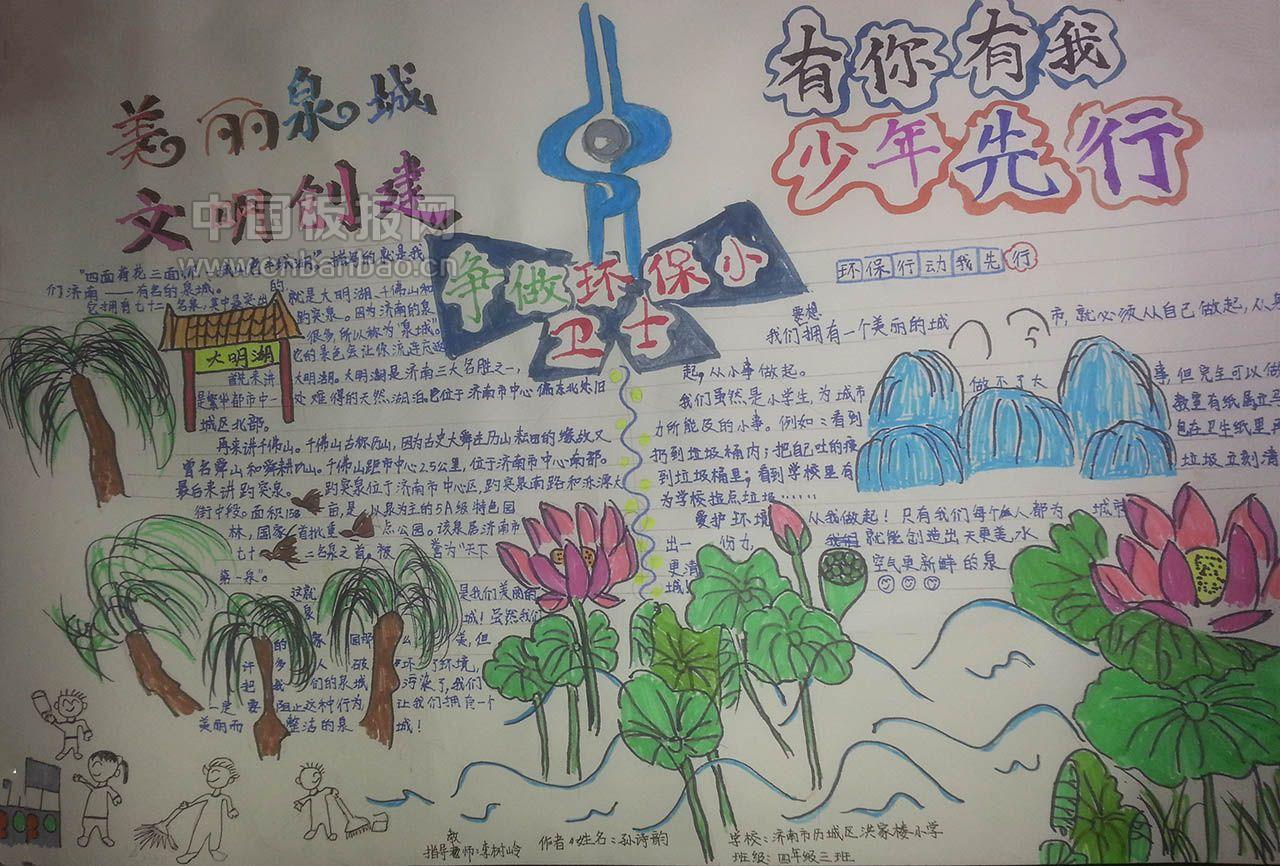 美丽泉城
文明创建
中国板报网
争做环保小
卫士
有你有我
少年先行
环保行动我先行
"四面荷花三面
描写的就是我
们济南——有名的泉城。
它拥有七十二名泉,其中最突出的就是大明湖、千佛山和
趵突泉。因为济南的泉
很多,所以称为"泉城。
大明湖
它的景色会让你流连忘返
首先来讲大明湖。大明湖是济南三大名胜之一,
是繁华都市中一处难得的天然湖泊,它位于济南市中心偏东北处旧
城区北部。
再来讲千佛山。千佛山古称历山,因为古史大舜在历山耕田的缘故又
曾名舜山和舜耕山。千佛山距市中心2.5公里,位于济南市中心南部。
最后来讲趵突泉。趵突泉位于济南市中心区,趵突泉南路和泺源大
街中段。面积158亩,是以泉为主的5A级特色园
林,国家首批重点公园。该泉居济南市
七十二名泉之首。被誉为"天下
第一泉"。
这就是我们美丽的
泉城!虽然我们
的家园那么美,但
许多人破坏了环境,
把我们的泉城污染了,我们
一定要阻止这种行为,让我们拥有一个
美丽而整洁的泉城!
要想
我们拥有一个美丽的城市,就必须从自己做起,从
起,从小事做起。
我们虽然是小学生,为城市做不了大事,但完全可以做
力所能及的小事。例如:看到教室有纸屑立马
扔到垃圾桶内;把自己吐的痰包在卫生纸里
到垃圾桶里;看到学校里有垃圾立刻清
为学校捡点垃圾……
爱护环境,从我做起!只有我们每个人都为城市
出一份力,我们就能创造出天更美,水
更清,空气更新鲜的泉
城!
指导教师:李树岭
作者姓名:孙诗韵
学校:济南市历城区洪家楼小学
班级:四年级三班